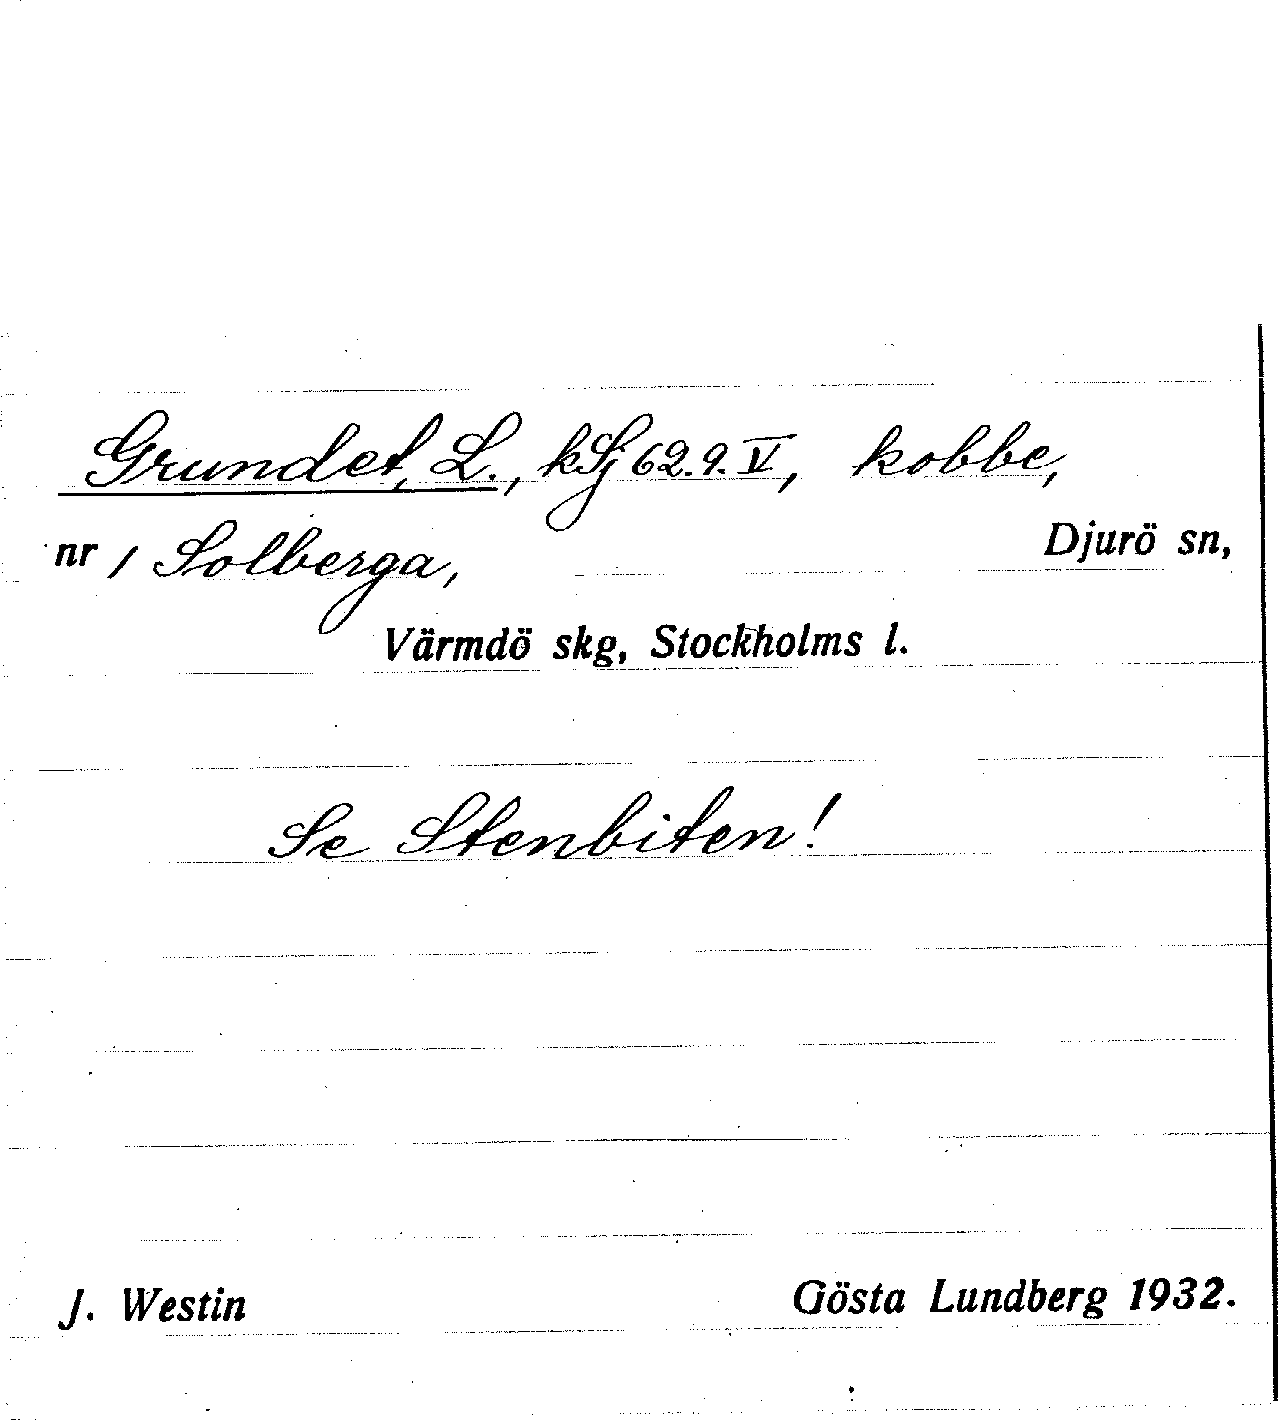 Grundet, L., kSj 62.9.V, kobbe,
nr 1 Solberga, Djurö sn,
Värmdö skg, Stockholms l.
Se Stenbiten!
J. Westin Gösta Lundberg 1932.